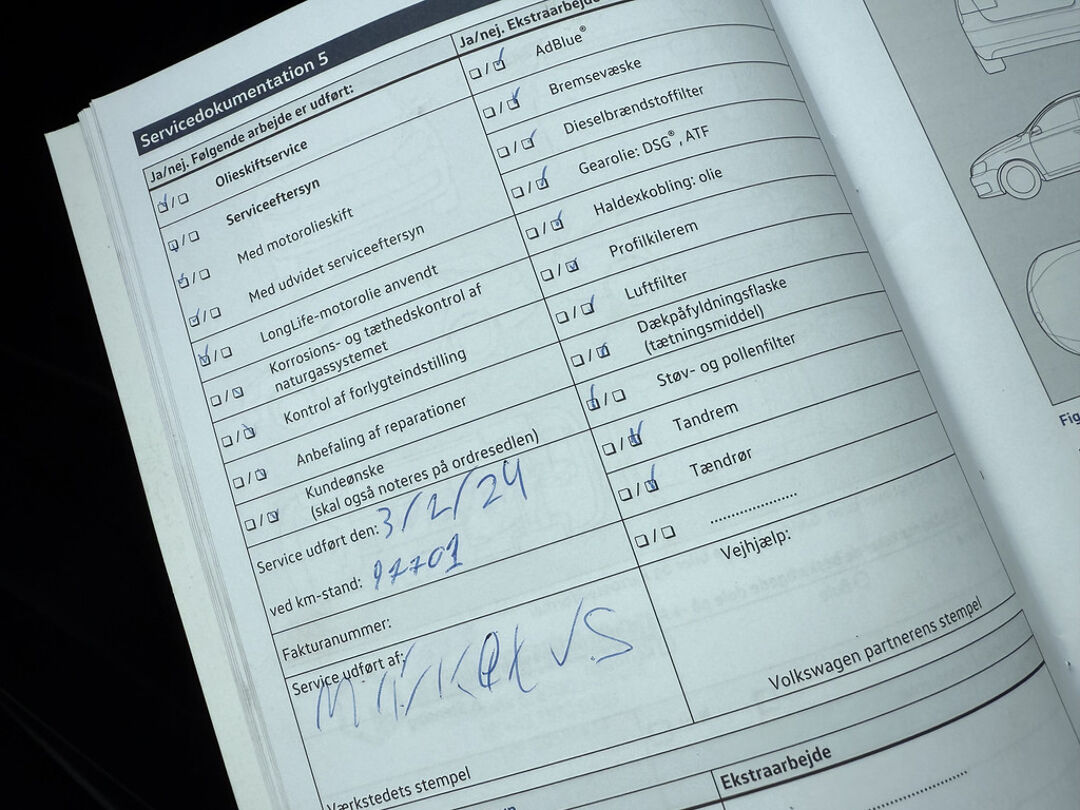 Servicedokumentation 5
Ja/nej. Følgende arbejde er udført:
Olieskiftservice
Serviceeftersyn
Med motorolieskift
Med udvidet serviceeftersyn
LongLife-motorolie anvendt
Korrosions- og tæthedskontrol af
naturgassystemet
Kontrol af forlygteindstilling
Anbefaling af reparationer
Kundeønske
(skal også noteres på ordresedlen)
Service udført den: 3/2/24
ved km-stand: 97701
Fakturanummer:
Service udført af:
Værkstedets stempel
Ja/nej. Ekstraarbejde
AdBlue®
Bremsevæske
Dieselbrændstoffilter
Gearolie: DSG®, ATF
Haldexkobling: olie
Profilkilerem
Luftfilter
Dækpåfyldningsflaske
(tætningsmiddel)
Støv- og pollenfilter
Tandrem
Tændrør
....................
Vejhjælp:
Volkswagen partnerens stempel
Ekstraarbejde
Fig